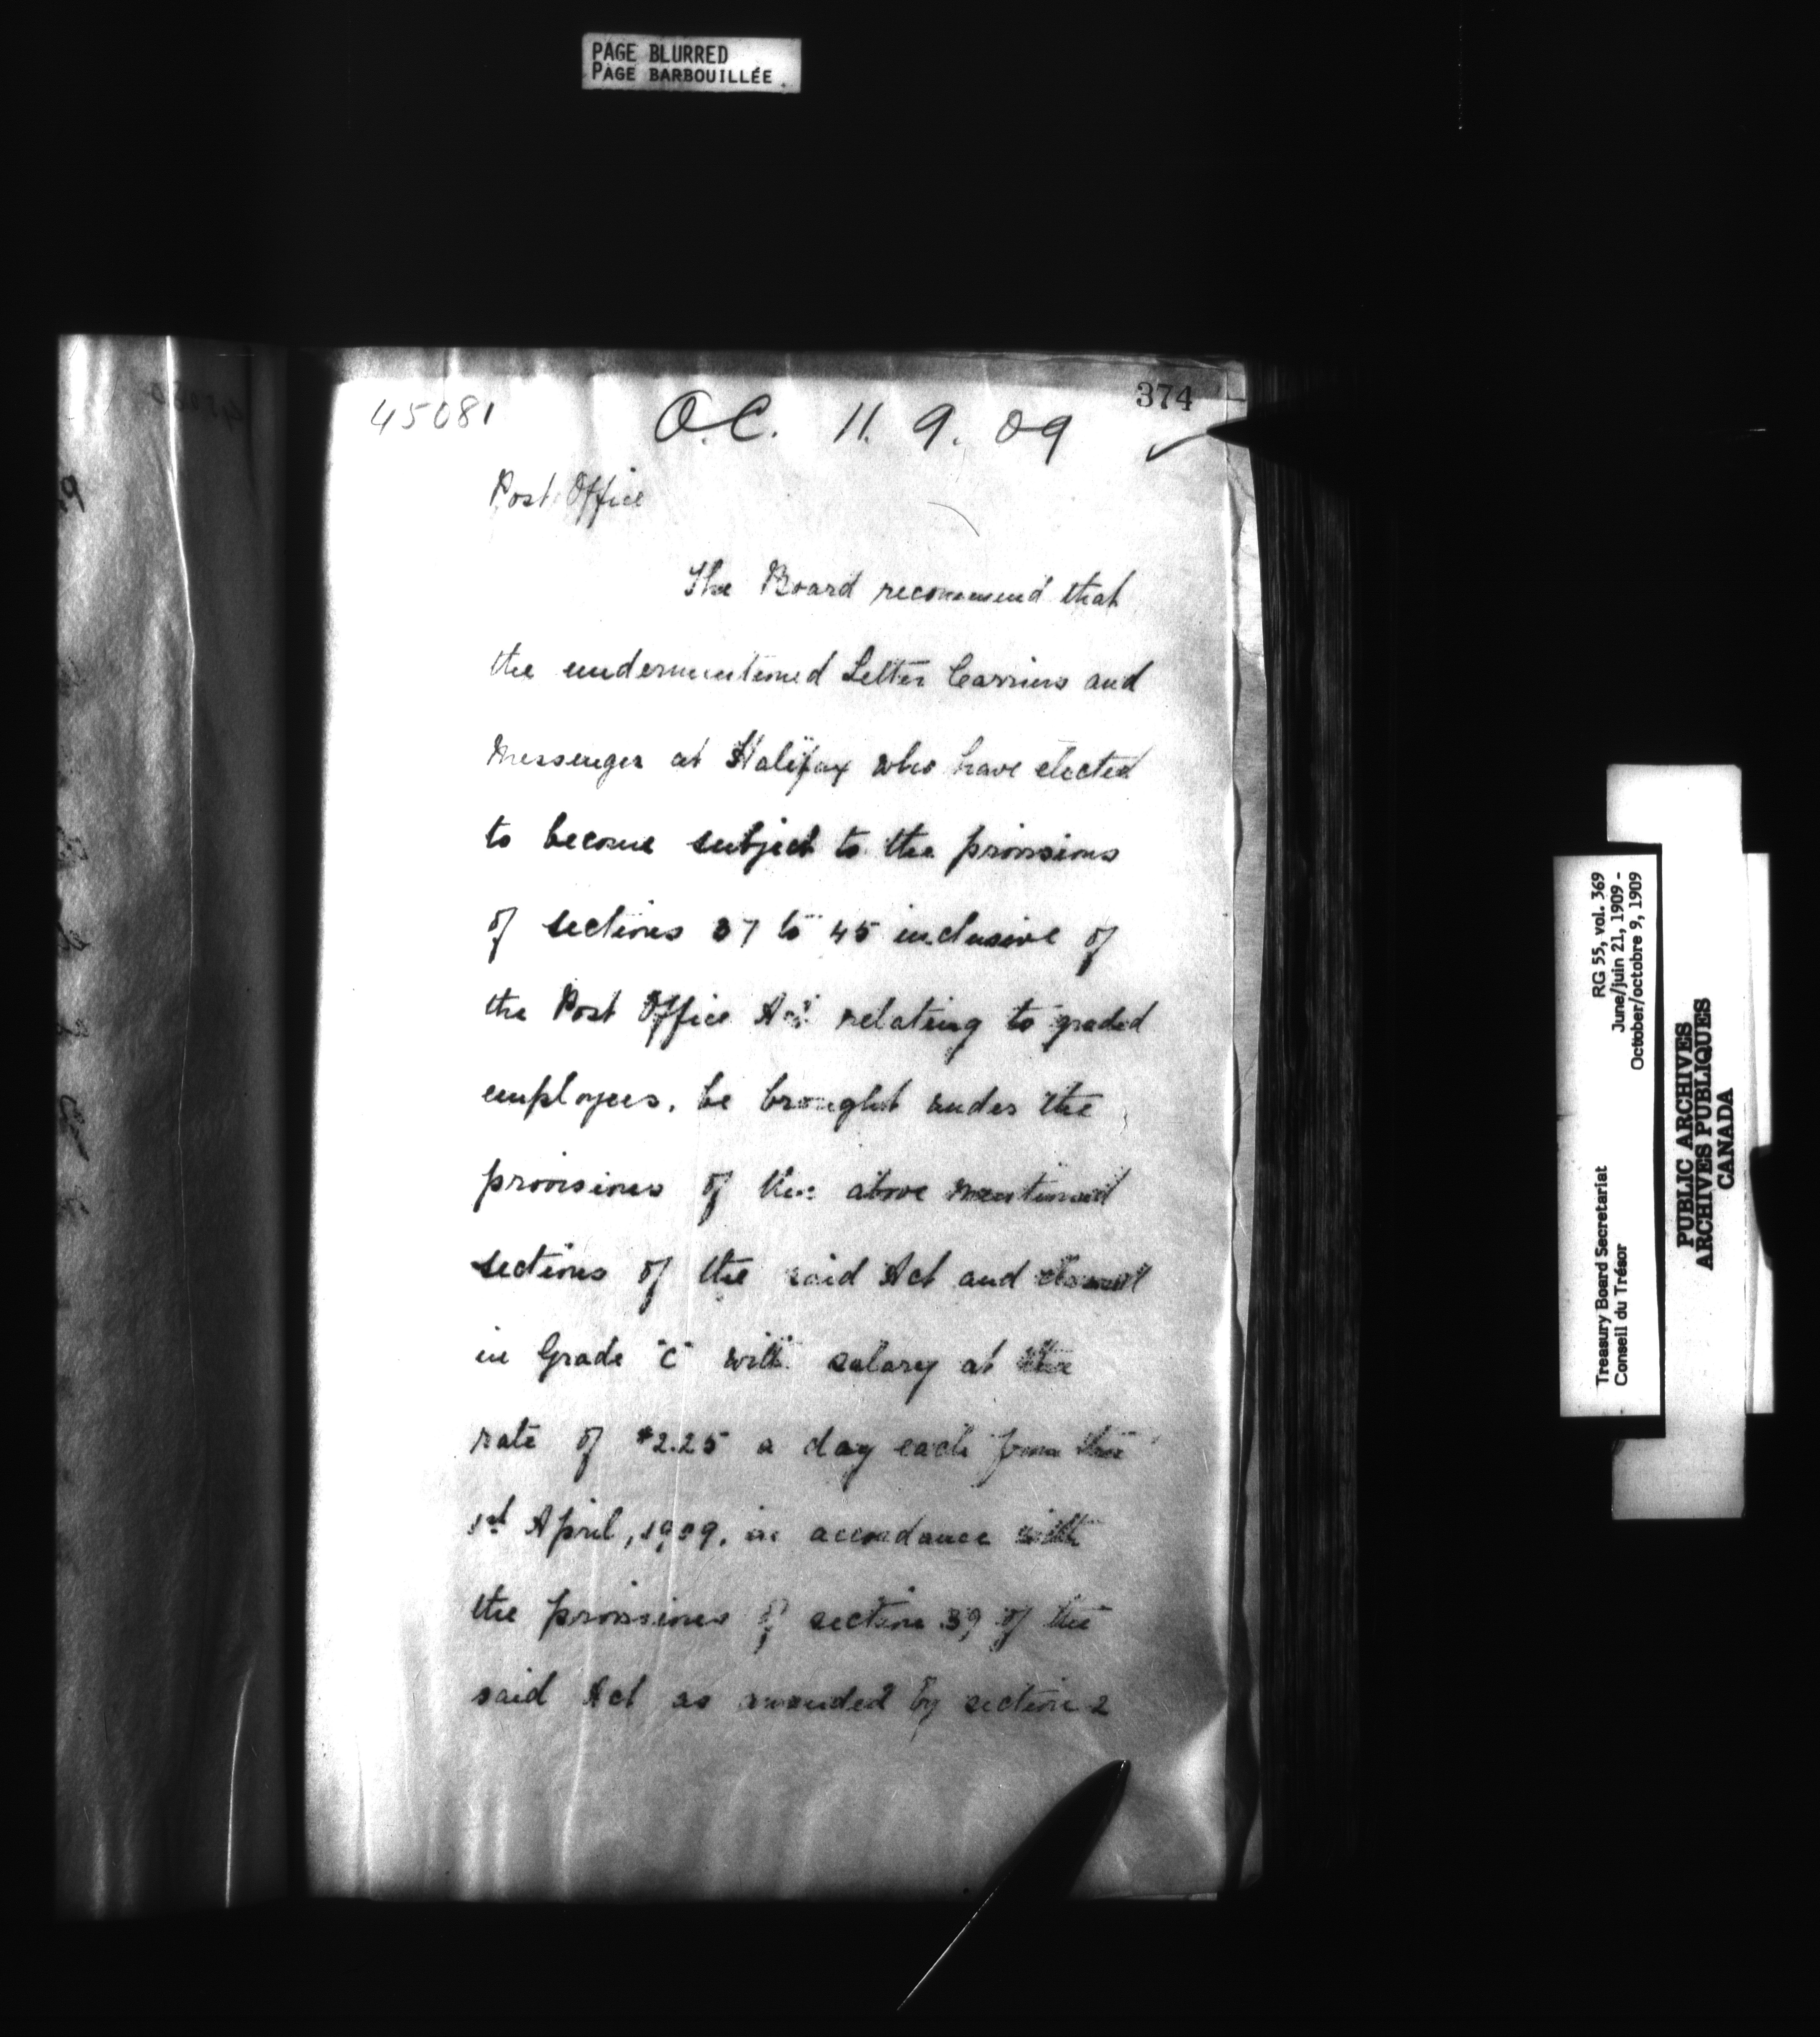 PAGE BLURRED
PAGE BARBOUILLÉE
374
45081 O.C. 11. 9. 09
Post Office
The Board recommend that
the undermentioned Letter Carriers and
Messenger at Halifax who have elected
to become subject to the provisions
of sections 37 to 45 inclusive of
the Post Office Act relating to graded
employees, be brought under the
provisions of the above mentioned
sections of the said Act and classed
in Grade "C" with salary at the
rate of $2.25 a day each from the
1st April, 1909, in accordance with
the provisions of section 39 of the
said Act as amended by section 2
RG 55, vol. 369
June/juin 21, 1909 -
October/octobre 9, 1909
Treasury Board Secretariat
Conseil du Trésor
PUBLIC ARCHIVES
ARCHIVES PUBLIQUES
CANADA